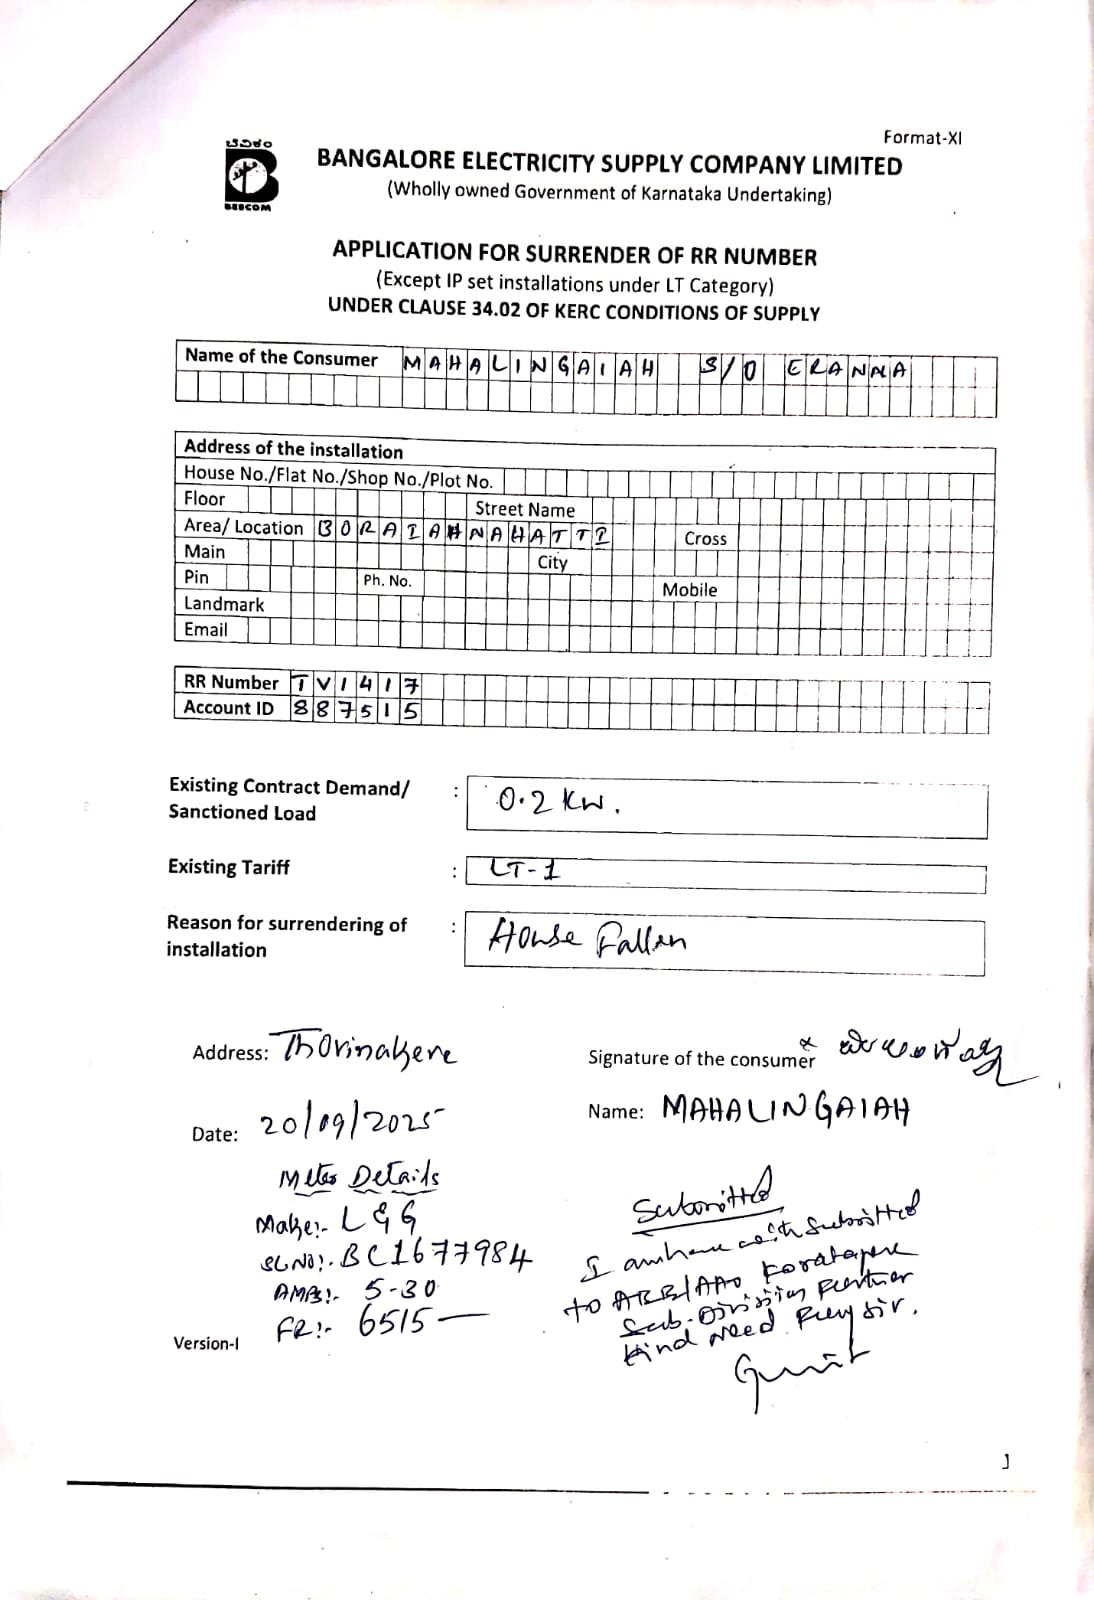 Format-XI
ಬೆವಿಕಂ
BESCOM
BANGALORE ELECTRICITY SUPPLY COMPANY LIMITED
(Wholly owned Government of Karnataka Undertaking)
APPLICATION FOR SURRENDER OF RR NUMBER
(Except IP set installations under LT Category)
UNDER CLAUSE 34.02 OF KERC CONDITIONS OF SUPPLY
Name of the Consumer MAHALINGAIAH S/O ERANNA
Address of the installation
House No./Flat No./Shop No./Plot No.
Floor Street Name
Area/ Location BORAIAHNAHATTI Cross
Main City
Pin Ph. No. Mobile
Landmark
Email
RR Number TV1417
Account ID 887515
Existing Contract Demand/ : 0.2 KW.
Sanctioned Load
Existing Tariff : LT-1
Reason for surrendering of : House Fallen
installation
Address: Thorinakere
Signature of the consumer x
Date: 20/09/2025
Name: MAHALINGAIAH
Meter Details
Make:- L&G
SL NO:- BC1677984
AMPS:- 5-30
FR:- 6515—
Submitted
I submitted
to Koratagere
Sub-Division Further
Kind Need sir.
Version-I
1